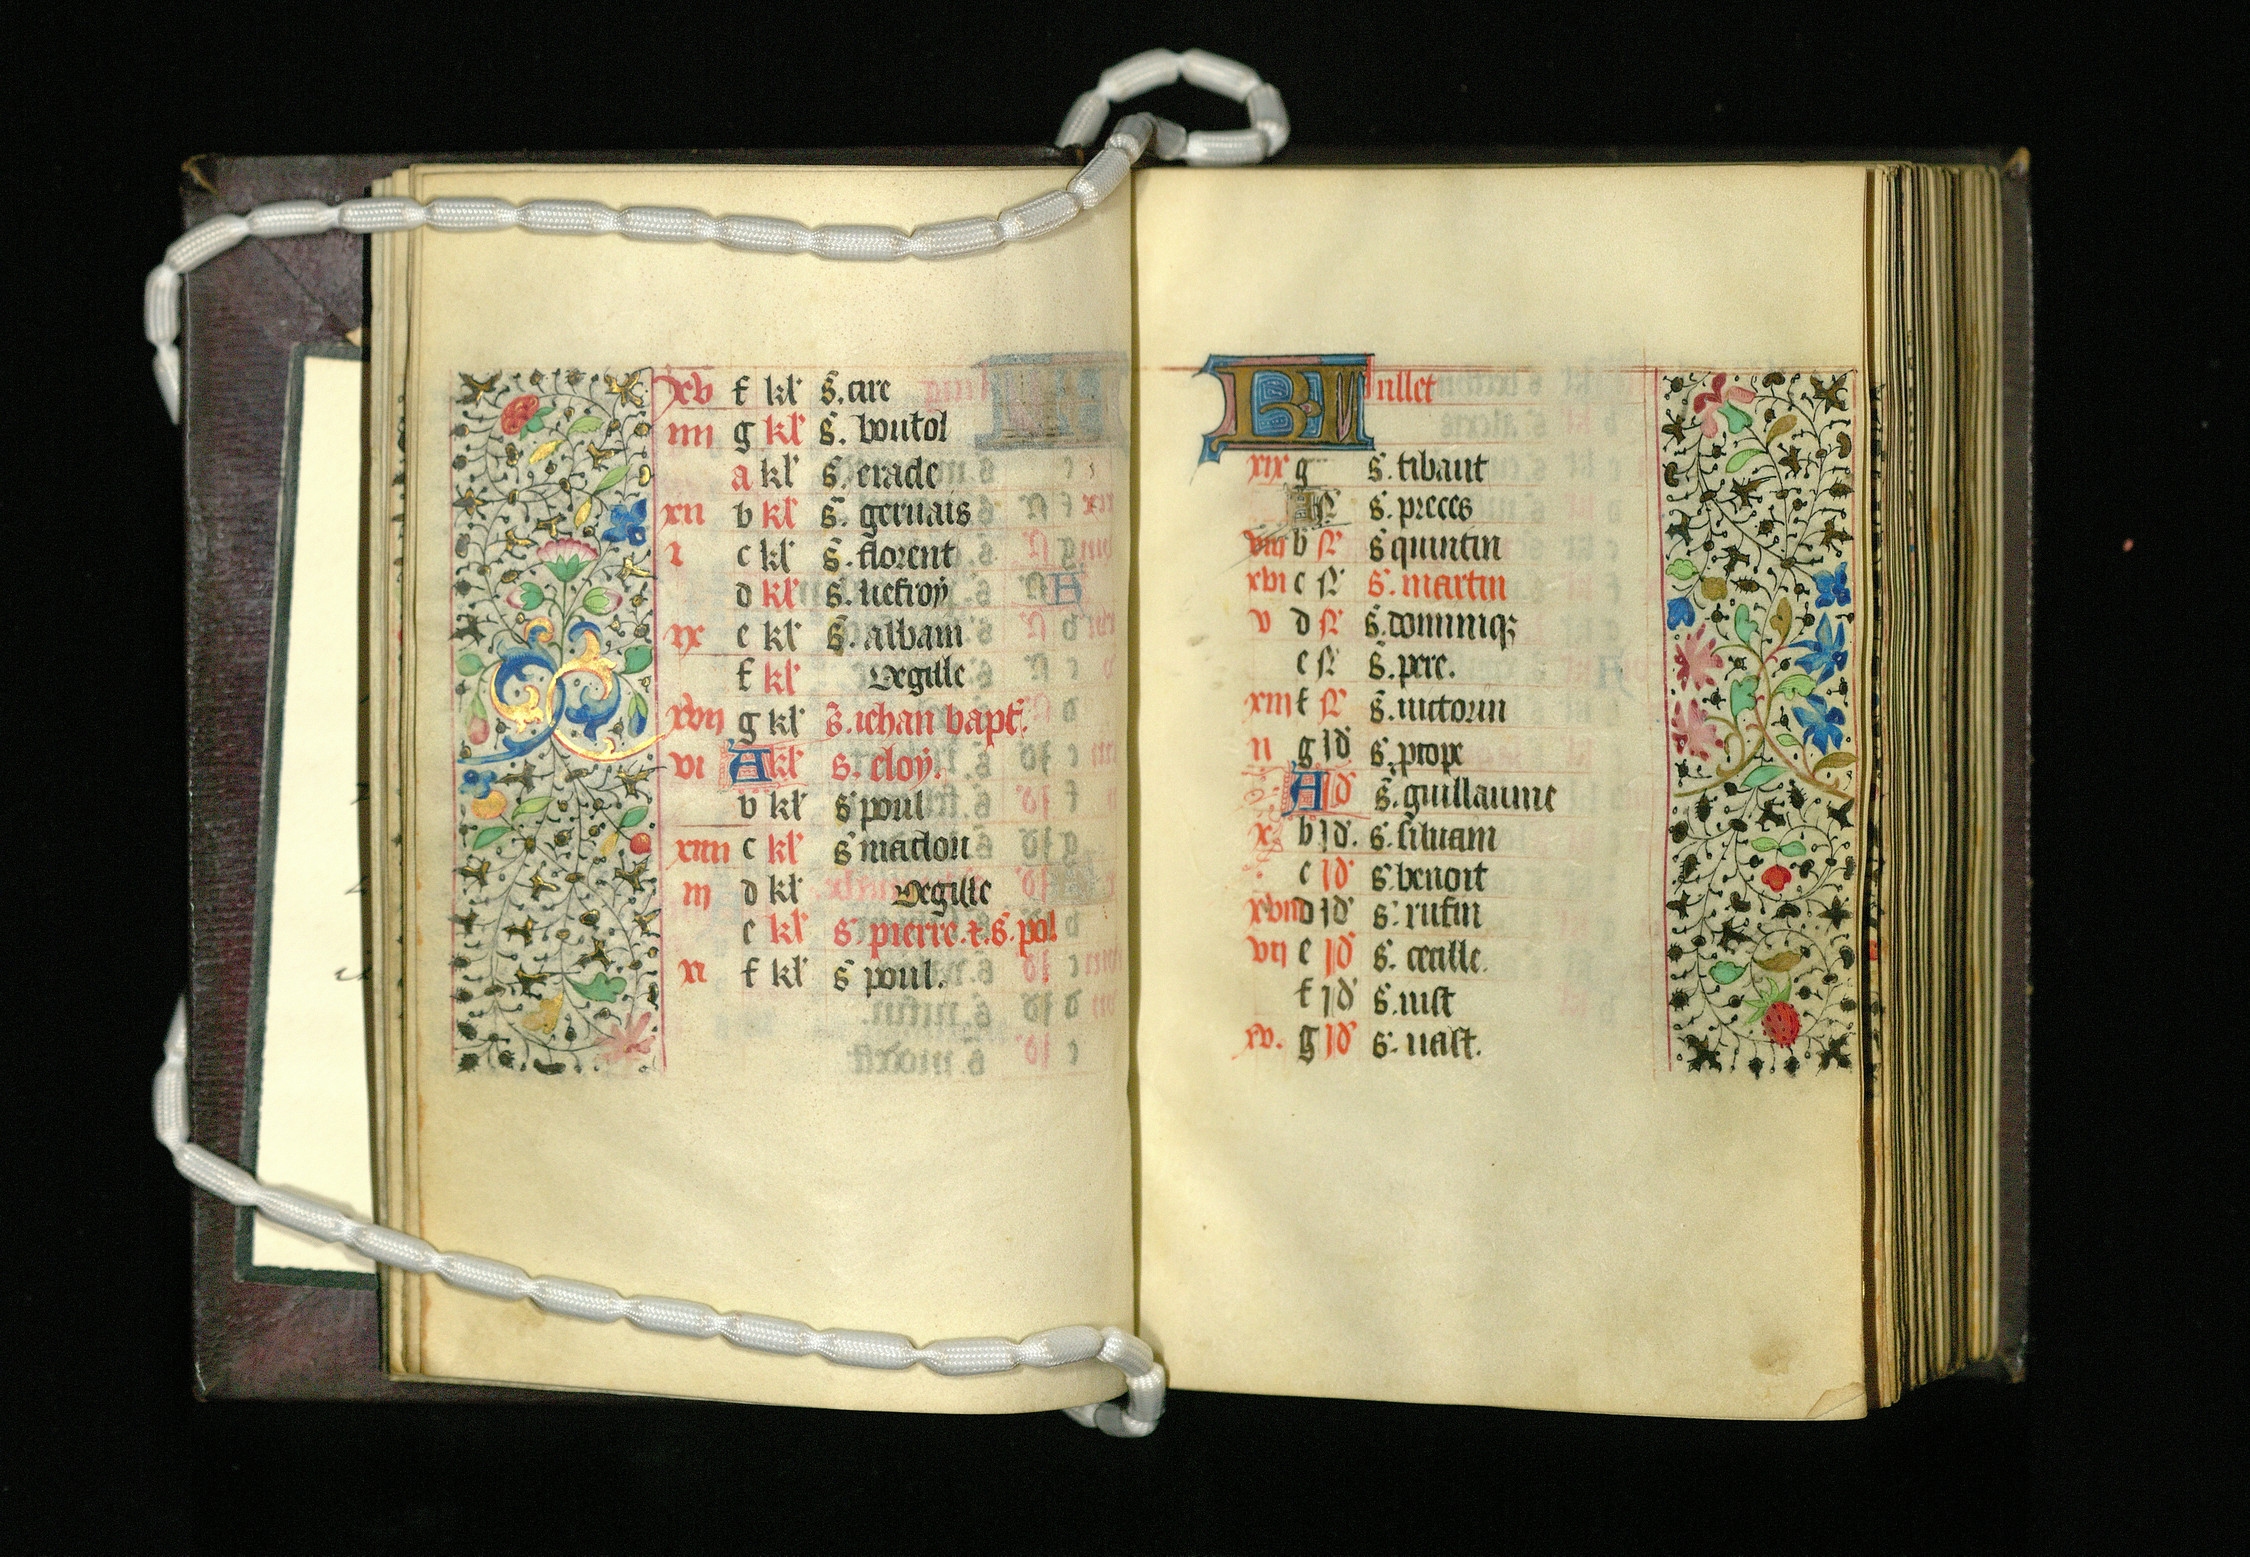 xv f kl' s. cire
iiii g kl' s. boutol
a kl' s. erade
xii b kl' s. geruais
i c kl' s. florent
d kl' s. liefroy
ix e kl' s. albain
f kl' Vegille
xvii g kl' s. iehan bapt.
vi A kl' s. eloy.
b kl' s poul
xiiii c kl' s maclou
iii d kl' Vegille
e kl' s. pierre. z. s. pol
xi f kl' s poul.
kl Iullet
xix g s. tibaut
A N' s. preces
viii b N' s quintin
xvi c N' s. martin
v d N' s. dominiq3
e N' s. pere.
xiii f N' s. uictorin
ii g Id' s. prope
A Id' s. guillaume
x b Id. s. siluain
c Id' s. benoit
xviii d Id' s. rufin
vii e Id' s. cecille.
f Id' s. iust
xv. g Id' s. uast.